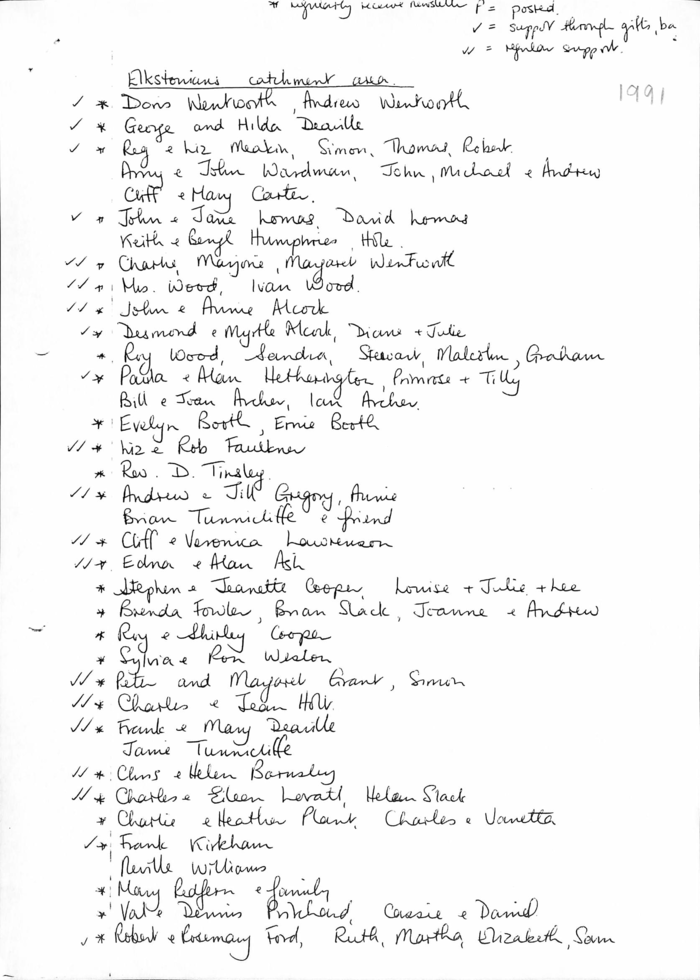 * regularly receive newsletter P = posted.
✓ = support through gifts, ba
✓✓ = regular support.
Elkstonians catchment area.
1991
✓ * Doris Wentworth, Andrew Wentworth
✓ * George and Hilda Deaville
✓ * Reg & Liz Meakin, Simon, Thomas, Robert.
Amy & John Wardman, John, Michael & Andrew
Cliff & Mary Carter.
✓ * John & Jane Lomas, David Lomas
Keith & Beryl Humphries, Hole.
✓✓ * Charlie, Marjorie, Margaret Wentworth
✓✓ * Mrs. Wood, Ivan Wood.
✓✓ * John & Annie Alcock
✓ * Desmond & Myrtle Alcock, Diane + Julie
* Roy Wood, Sandra, Stewart, Malcolm, Graham
✓ * Paula & Alan Hetherington, Primrose + Tilly
Bill & Joan Archer, Ian Archer.
* Evelyn Booth, Ernie Booth
✓✓ * Liz & Rob Faulkner
* Rev. D. Tinsley.
✓✓ * Andrew & Jill Gregory, Annie
Brian Tunnicliffe & friend
✓✓ * Cliff & Veronica Lawrenson
✓✓ * Edna & Alan Ash
* Stephen & Jeanette Cooper, Louise + Julie + Lee
* Brenda Fowler, Brian Slack, Joanne & Andrew
* Roy & Shirley Cooper
* Sylvia & Ron Weston
✓✓ * Peter and Margaret Grant, Simon
✓✓ * Charles & Jean Holt.
✓✓ * Frank & Mary Deaville
Jamie Tunnicliffe
✓✓ * Chris & Helen Barnsley
✓✓ * Charles & Eileen Lovatt, Helen Slack
* Charlie & Heather Plant, Charles & Vanetta
✓ * Frank Kirkham
Neville Williams
* Mary Redfern & family
* Val & Dennis Prichard, Cassie & Daniel
✓ * Robert & Rosemary Ford, Ruth, Martha, Elizabeth, Sam